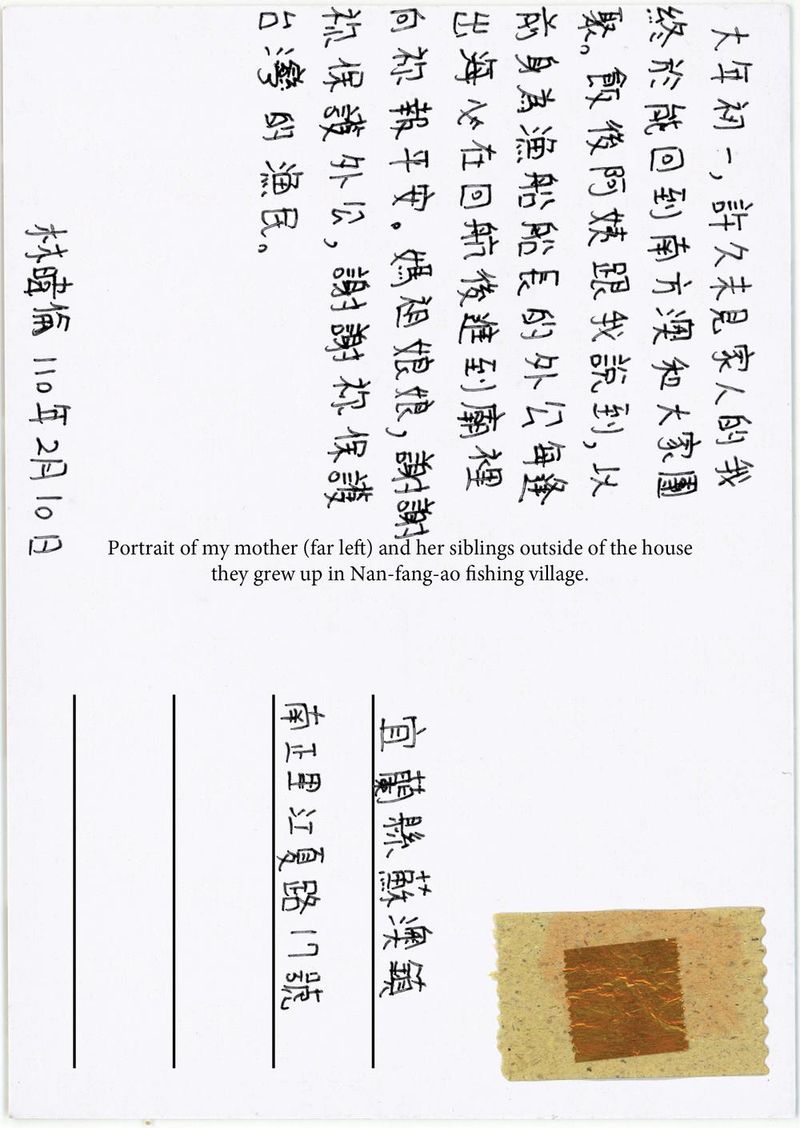 大年初一，許久未見家人的我
終於能回到南方澳和大家團
聚。飯後阿姨跟我說到，以
前身為漁船船長的外公每逢
出海必在回航後進到廟裡
向祢報平安。媽祖娘娘，謝謝
祢保護外公，謝謝祢保護
台灣的漁民。
林倫 110年2月10日
Portrait of my mother (far left) and her siblings outside of the house
they grew up in Nan-fang-ao fishing village.
宜蘭縣蘇澳鎮
南正里江夏路17號